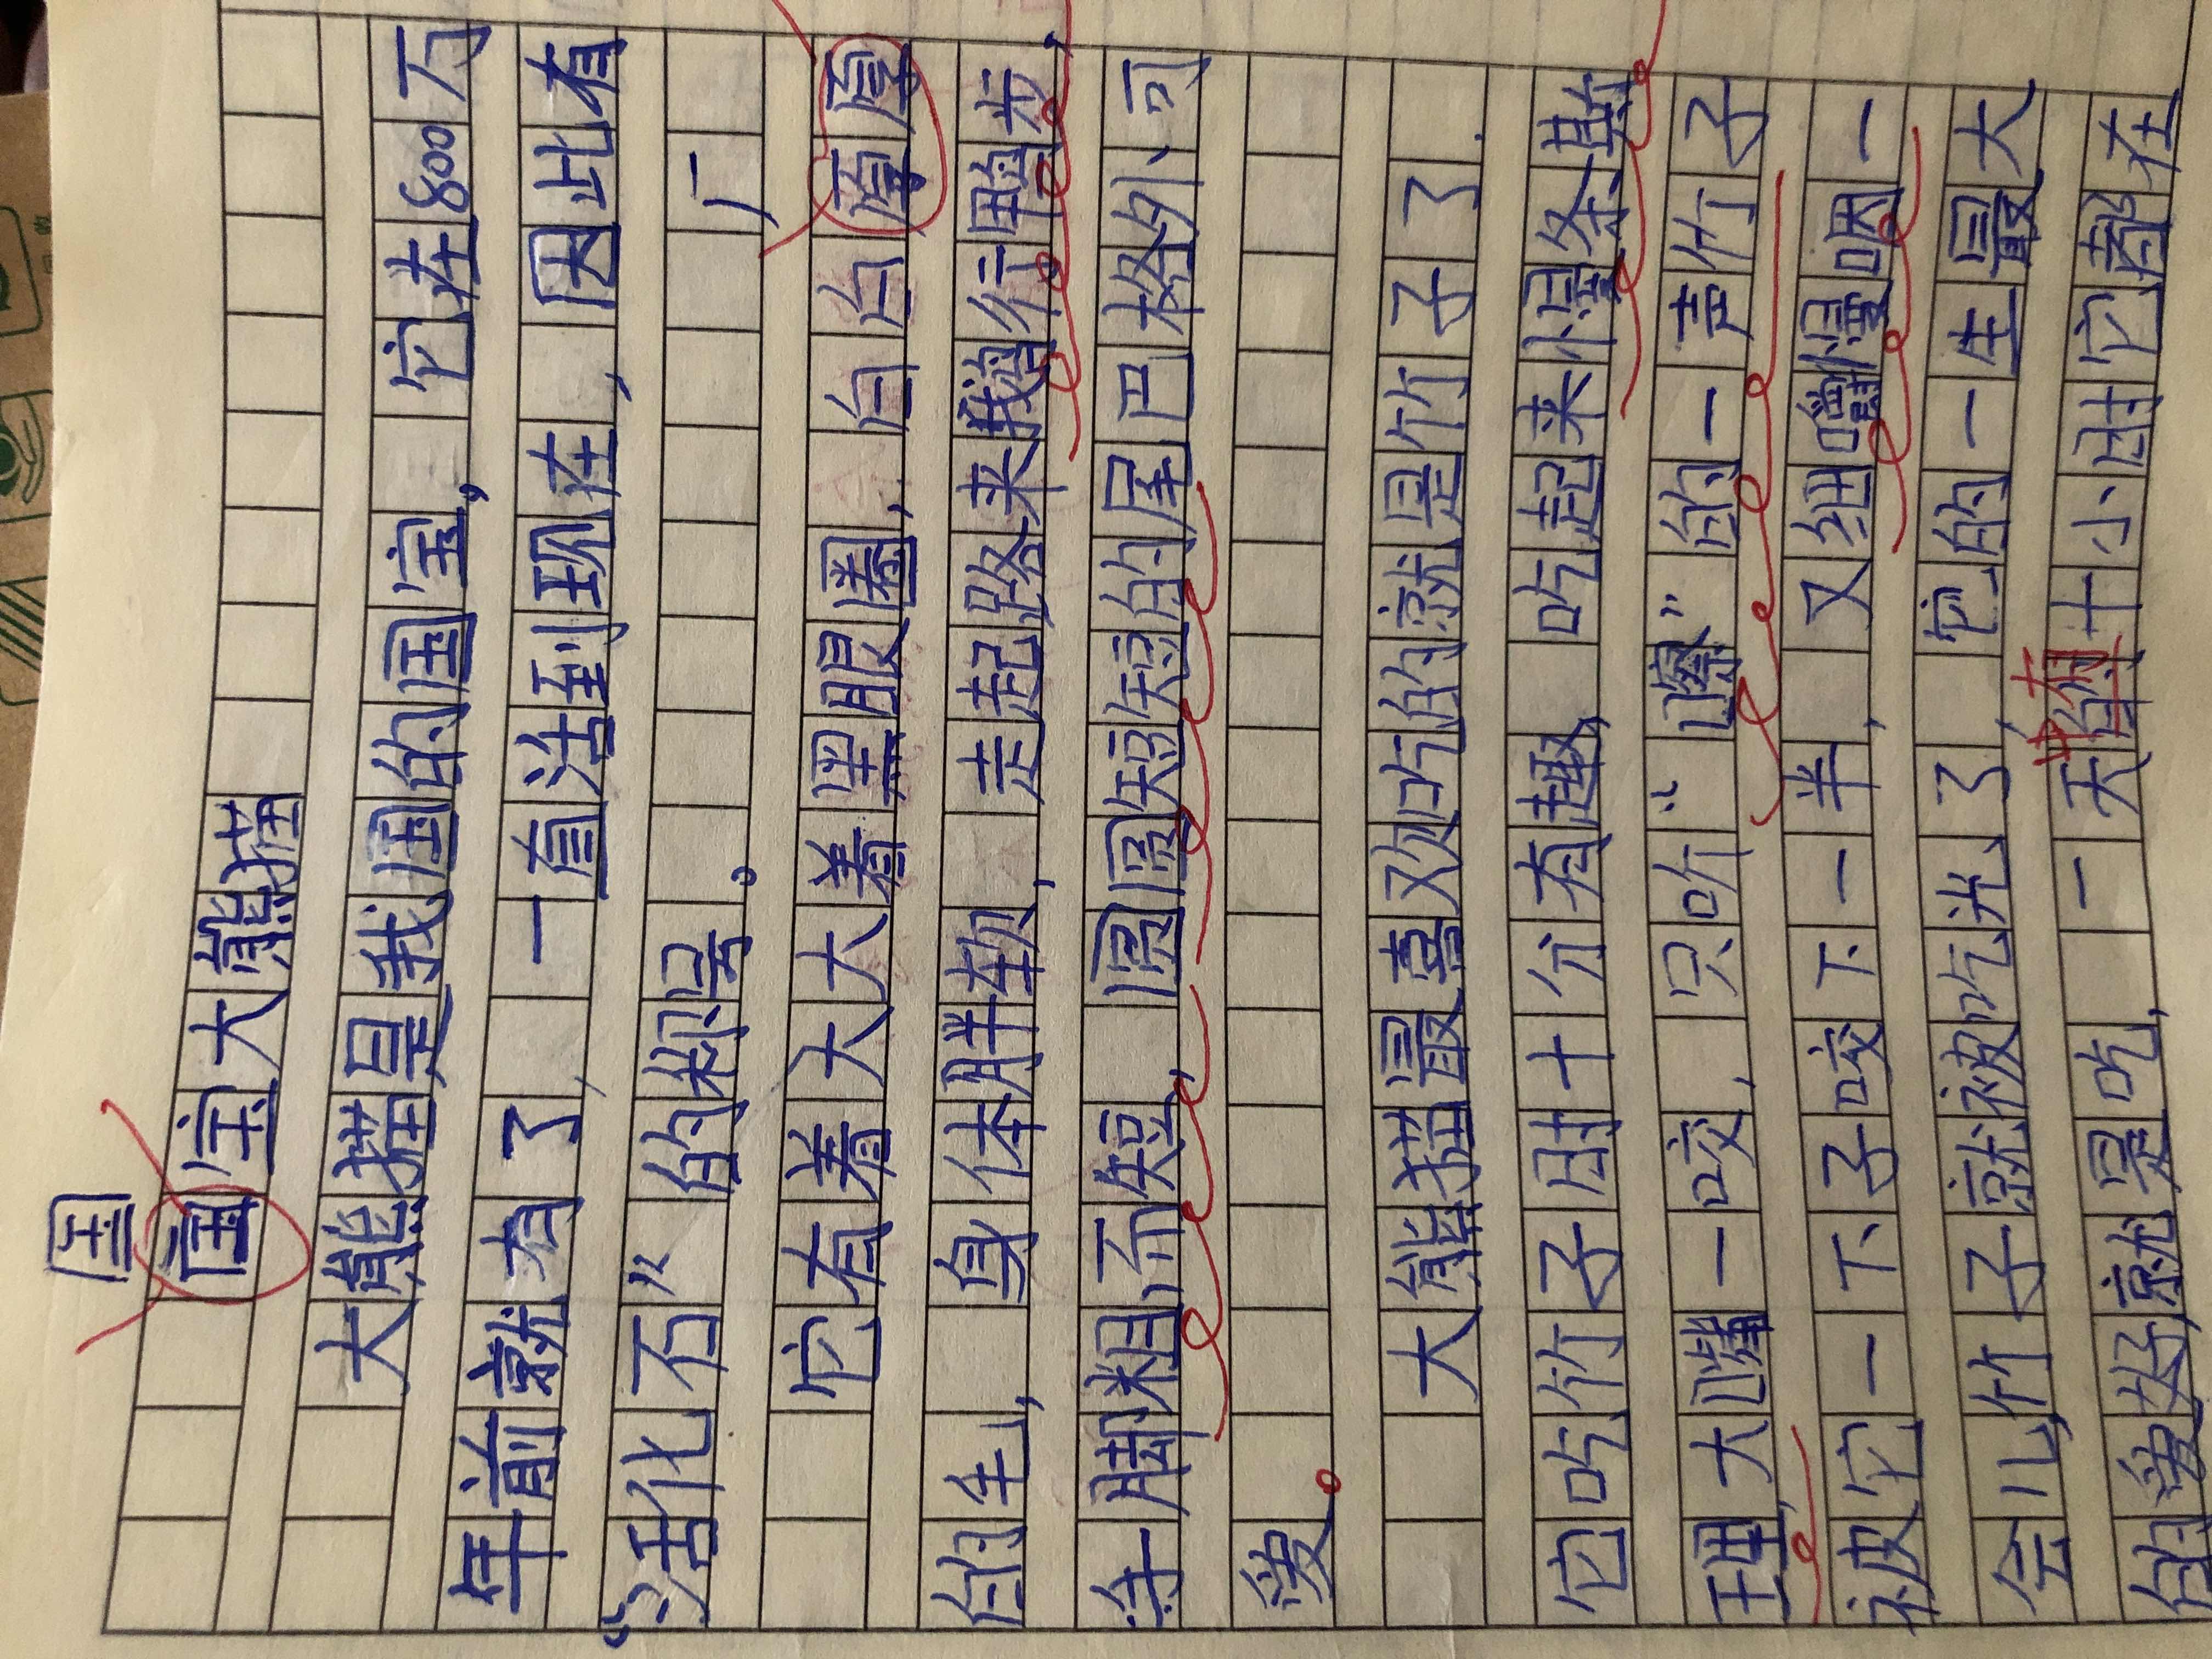 国
国宝大熊猫
大熊猫是我国的国宝，它在800万
年前就有了，一直活到现在，因此有
“活化石”的称号。
它有着大大着黑眼圈，白白厚厚
的毛，身体胖软，走起路来鹅行鸭步，
一脚粗而短，圆圆短短的尾巴格外可
爱。
大熊猫最喜欢吃的就是竹子了.
它吃竹子时十分有趣，吃起来慢条斯
理，大嘴一咬，只听“嚓”的一声竹子
被它一下子咬下一半，又细嚼慢咽一
会儿，竹子就被吃光了，它的一生最大
的爱好就是吃，一天中有十小时它都在